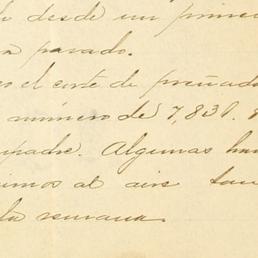 desde un primer
pasado.
el corte de preñada
número de 7,830.
padre. Algunas han
imos al aire
la semana